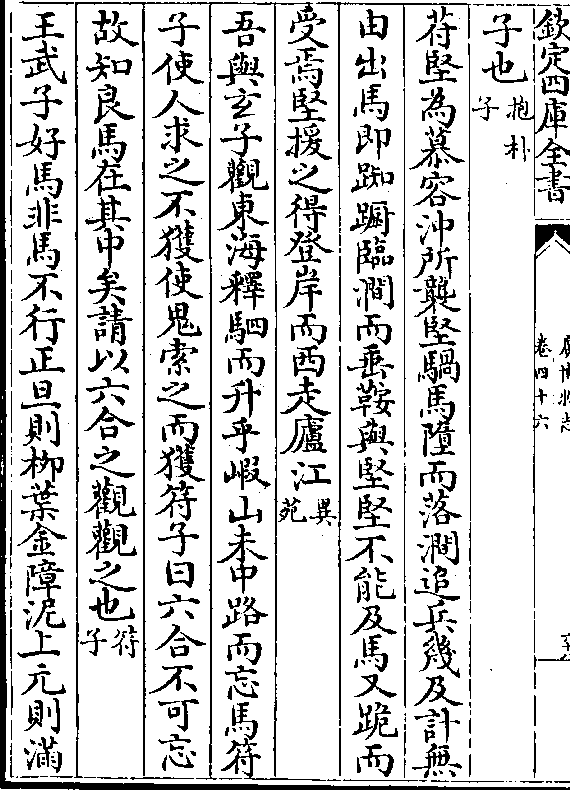 欽定四庫全書
卷四十六
子也抱朴子
苻堅為慕容沖所襲堅騧馬墮而落澗追兵幾及計無
由出馬即踟躕臨澗而垂鞍與堅堅不能及馬又跪而
受焉堅援之得登岸而西走廬江異苑
吾與玄子觀東海釋駟而升乎嵑山未中路而忘馬符
子使人求之不獲使鬼索之而獲符子曰六合不可忘
故知良馬在其中矣請以六合之觀觀之也符子
王武子好馬非馬不行正旦則柳葉金障泥上元則滿